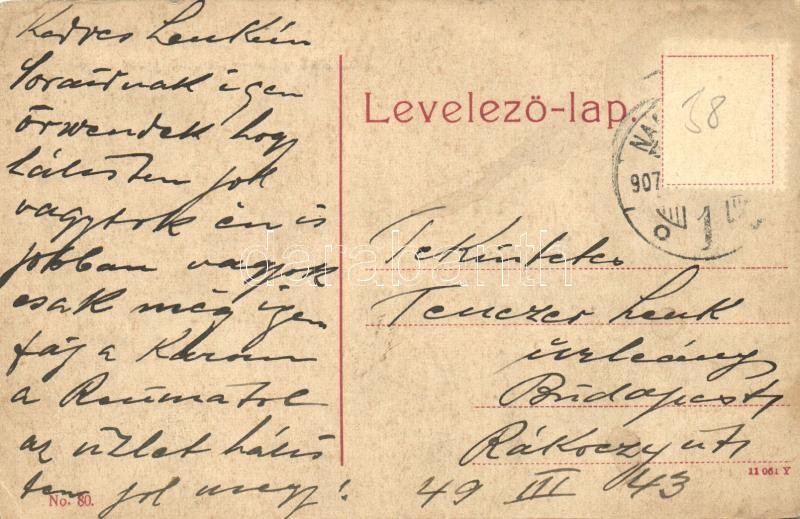 Kedves Lenkém
Soraidnak igen
örvendek hogy
hálisten jol
vagytok én is
jobban vagyok
csak még igen
fáj a Karom
a Reumatol
az üzlet hális
ten jol megy!
No. 80.
Levelező-lap.
58
NA
907
1
Tekintetes
Tenczer Lenk
úrleány
Budapest
Rákoczy uti
49 III 43
11 061 Y
darabanth